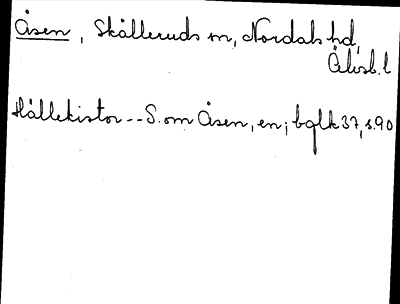 Åsen, Skålleruds sn, Nordals hd,
Älvsb. l
Hällekistor -- S. om Åsen, en; bglk 37, s. 90